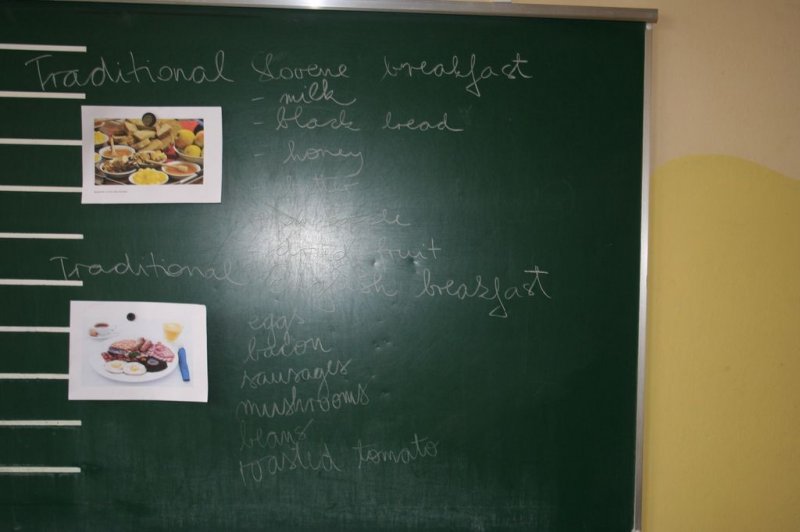 Traditional Slovene breakfast
- milk
- black bread
- honey
fruit
Traditional breakfast
eggs
bacon
sausages
mushrooms
beans
roasted tomato